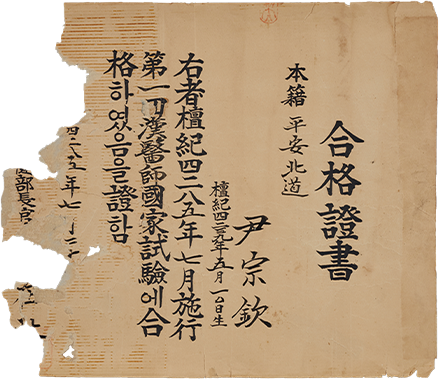 合格證書
本籍 平安北道
尹宗欽
檀紀四二三九年五月一〇日生
右者檀紀四二八五年七月施行
第一回漢醫師國家試驗에合
格하였음을證함
四二八五年七月
部長官